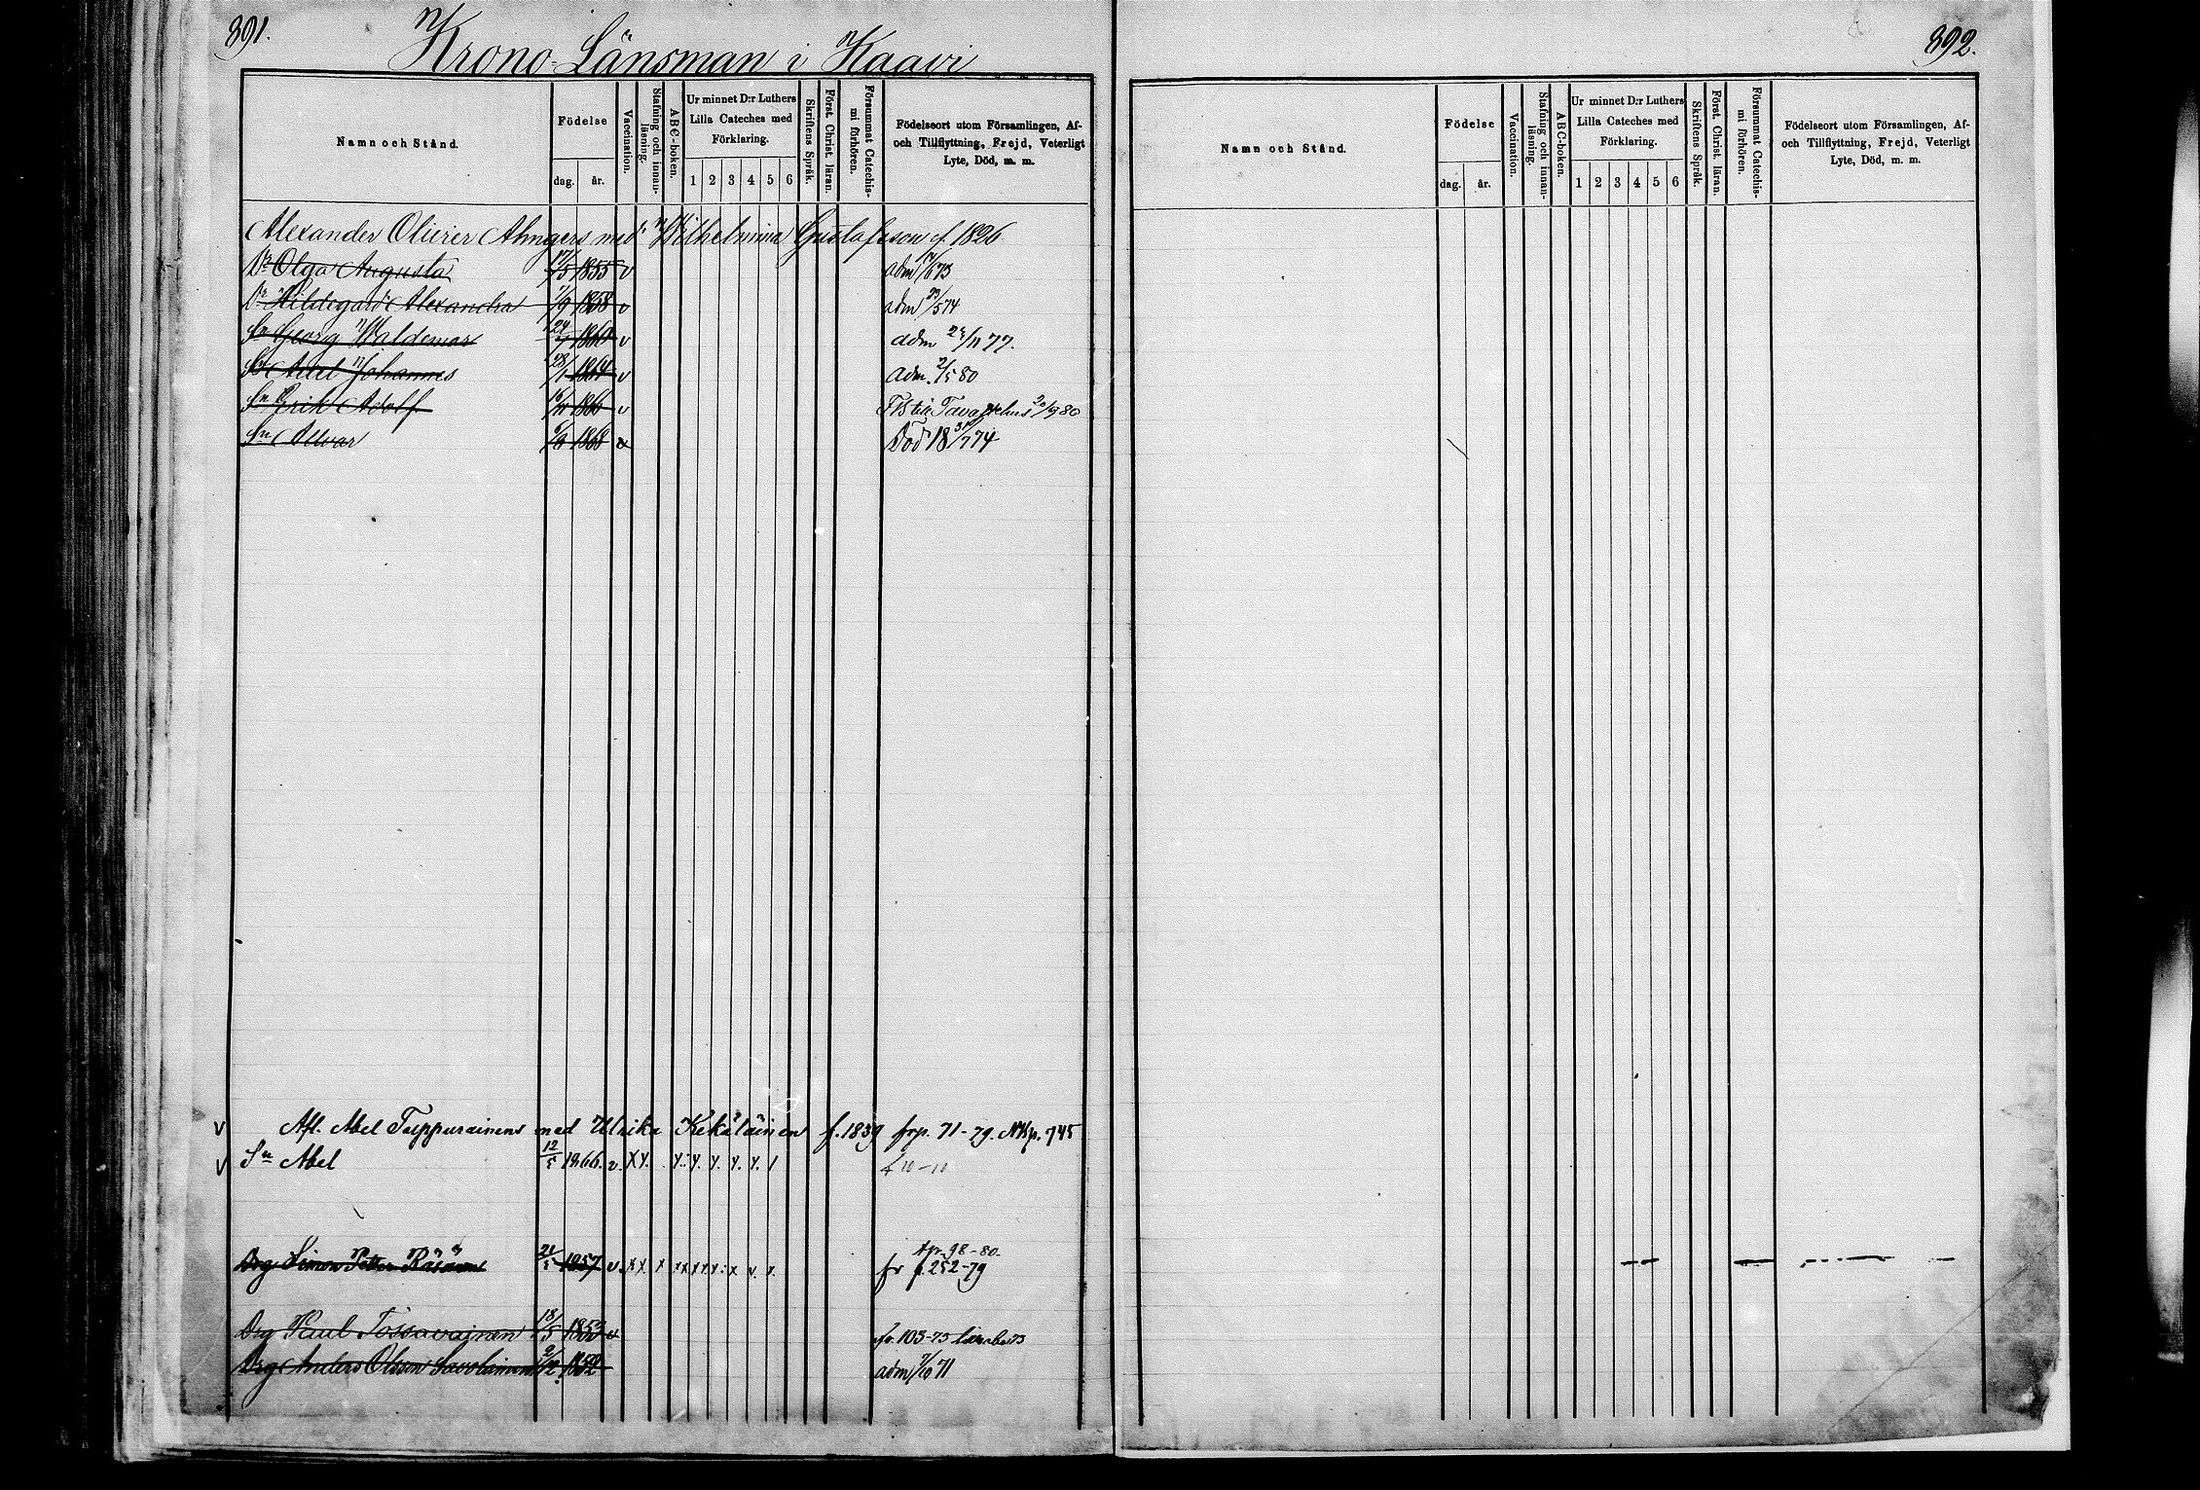 891.
Krono-Länsman i Kaavi
Namn och Stånd.
Födelse
dag. år.
Vaccination.
Stafning och innanläsning.
ABC-boken.
Ur minnet D:r Luthers
Lilla Cateches med
Förklaring.
1 2 3 4 5 6
Skriftens Språk.
Först. Christ. läran.
Försummat Catechismi förhören.
Födelseort utom Församlingen, Af-
och Tillflyttning, Frejd, Veterligt
Lyte, Död, m. m.
Alexander Olierer Ahngers med Wilhelmina Gustafsson f. 1826
Dr Olga Augusta 17/5 1855 v adm 673
Dr Hildegard Alexandra 7/9 1858 v adm 23/5 74
Sn Georg Waldemar 24 1860 v adm 77.
Sn Axel Johannes 28/1 1864 v adm. 7/5 80
Sn Erik Adolf 1866 v till Tavastehus 20/9 80
Sn Allvar 6/9 1868 Död 18 31/7 74
Afl. Abel Tuppurainens med Ulrika Kekäläinen f. 1839 frp. 71-79. 745
Sn Abel 12/5 1866. v. x y. y. y. y. y. y. /
Drg Simon Peter Räsänen 21 1857 v x x x x x x x x v x.
98-80.
fr p. 252-79
Drg Paul Tossavainen 18/5 1853 v fr. 103-75
Drg Anders Olsson Savolainen 2/12 1852 adm 7/10 71
892.
Namn och Stånd.
Födelse
dag. år.
Vaccination.
Stafning och innanläsning.
ABC-boken.
Ur minnet D:r Luthers
Lilla Cateches med
Förklaring.
1 2 3 4 5 6
Skriftens Språk.
Först. Christ. läran.
Försummat Catechismi förhören.
Födelseort utom Församlingen, Af-
och Tillflyttning, Frejd, Veterligt
Lyte, Död, m. m.